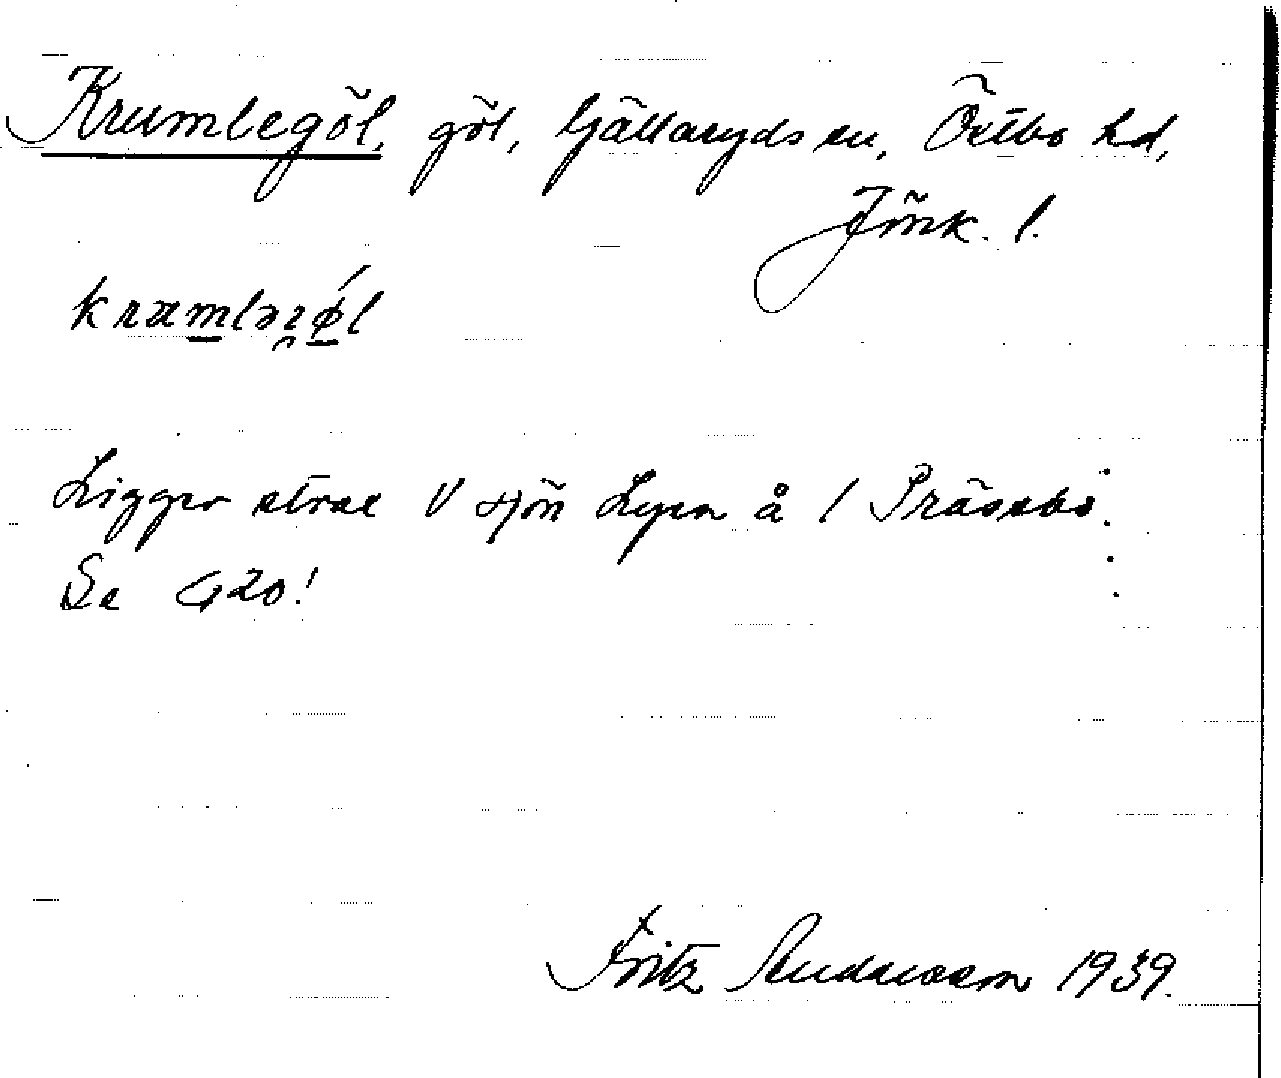 Krumlegöl, göl, Gällaryds sn, Östbo hd,
Jönk. l.
Ligger strax V sjön Lyen å / Präsebo.
Se G20!
Fritz Andersson 1939.